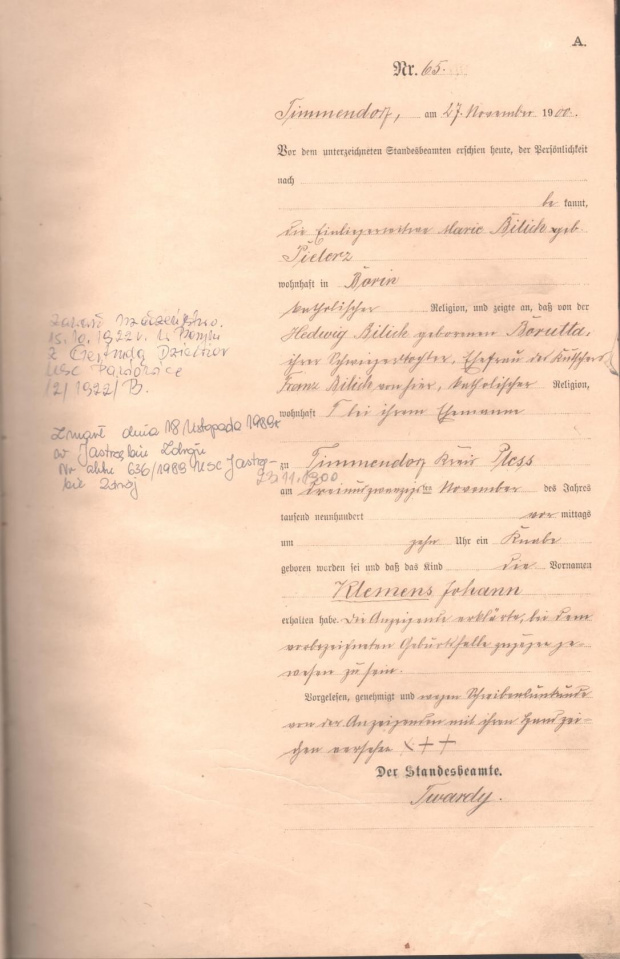 A.
Nr. 65.
Timmendorf, am 27. November 1900.
Vor dem unterzeichneten Standesbeamten erschien heute, der Persönlichkeit
nach
be kannt,
die Einliegerwitwe Marie Bilick geb.
Pieterz
wohnhaft in Borin
katholischer Religion, und zeigte an, daß von der
Hedwig Bilick geborenen Borutta,
ihrer Schwiegertochter, Ehefrau des Kutschers
Franz Bilick von hier, katholischer Religion,
wohnhaft bei ihrem Ehemanne
zu Timmendorf Kreis Pless
am dreiundzwanzigsten November des Jahres
tausend neunhundert vor mittags
um zehn Uhr ein Knabe
geboren worden sei und daß das Kind die Vornamen
Klemens Johann
erhalten habe. Die Anzeigende erklärte, bei dem
vorbezeichneten Geburtsfalle zugegen ge-
wesen zu sein.
Vorgelesen, genehmigt und wegen Schreibensunkunde
von der Anzeigenden mit ihren Handzei-
chen versehen +++
Der Standesbeamte.
Twardy.
zawarł małżeństwo
15.10.1922r. u
z Gertrudą
USC Pawłowice
12/1922/B.
Zmarł dnia 18 listopada 1989r
w Jastrzębiu Zdroju
Nr aktu 636/1989 USC Jastrzę-
bie Zdrój
23.11.1900